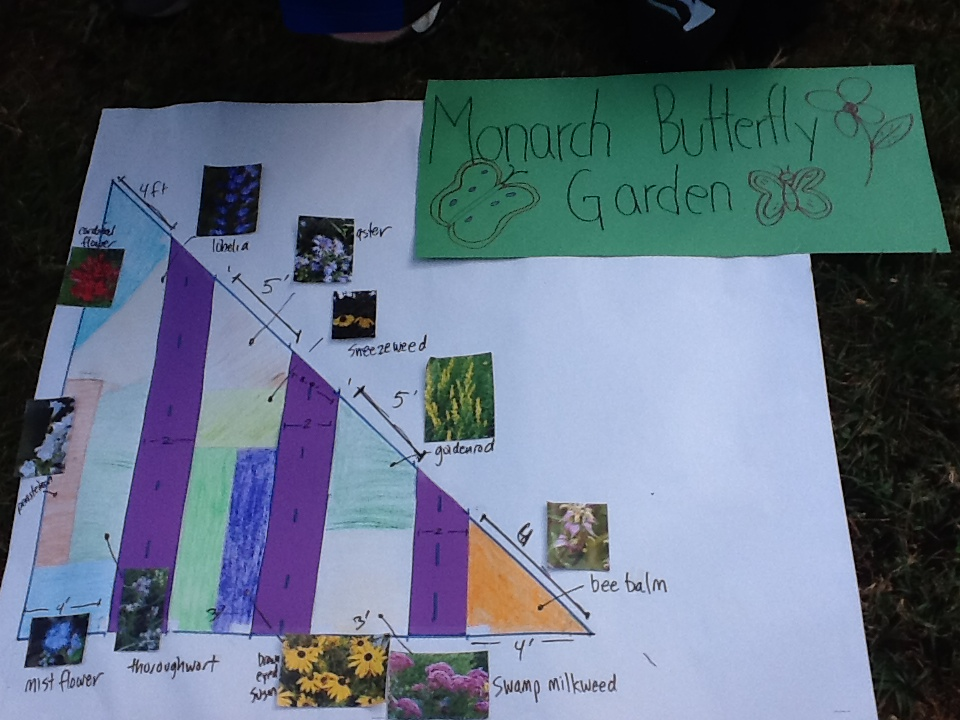 Monarch Butterfly
Garden
4ft
cardinal
flower
lobelia
aster
5'
sneezeweed
5'
goldenrod
2
2
2
6
bee balm
4'
3'
3'
4'
mist flower
thoroughwort
brown
eyed
susan
swamp milkweed